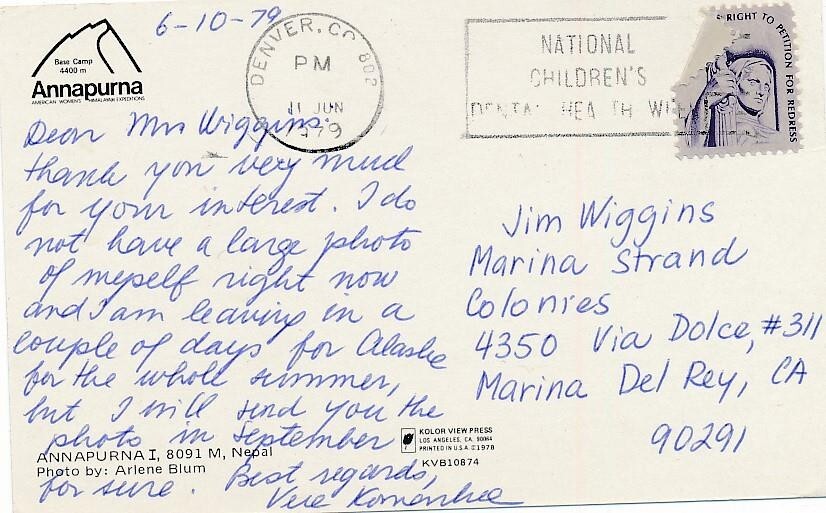 6-10-79
Base Camp
4400 m
Annapurna
AMERICAN WOMEN'S HIMALAYAN EXPEDITIONS
DENVER, CO 802
PM
11 JUN
1979
NATIONAL
CHILDREN'S
DENTAL HEALTH WEEK
RIGHT TO PETITION FOR REDRESS
Dear Mr Wiggins.
thank you very mud
for your interest. I do
not have a large photo
of meyself right now
and I am leaving in a
couple of days for Alaska
for the whole summer,
but I will send you the
photo in September
for sure. Best regards,
Vera Komarkova
Jim Wiggins
Marina Strand
Colonies
4350 Via Dolce, #311
Marina Del Rey, CA
90291
ANNAPURNA I, 8091 M, Nepal
Photo by: Arlene Blum
KOLOR VIEW PRESS
LOS ANGELES, CA. 90064
PRINTED IN U.S.A. ©1978
KVB10874